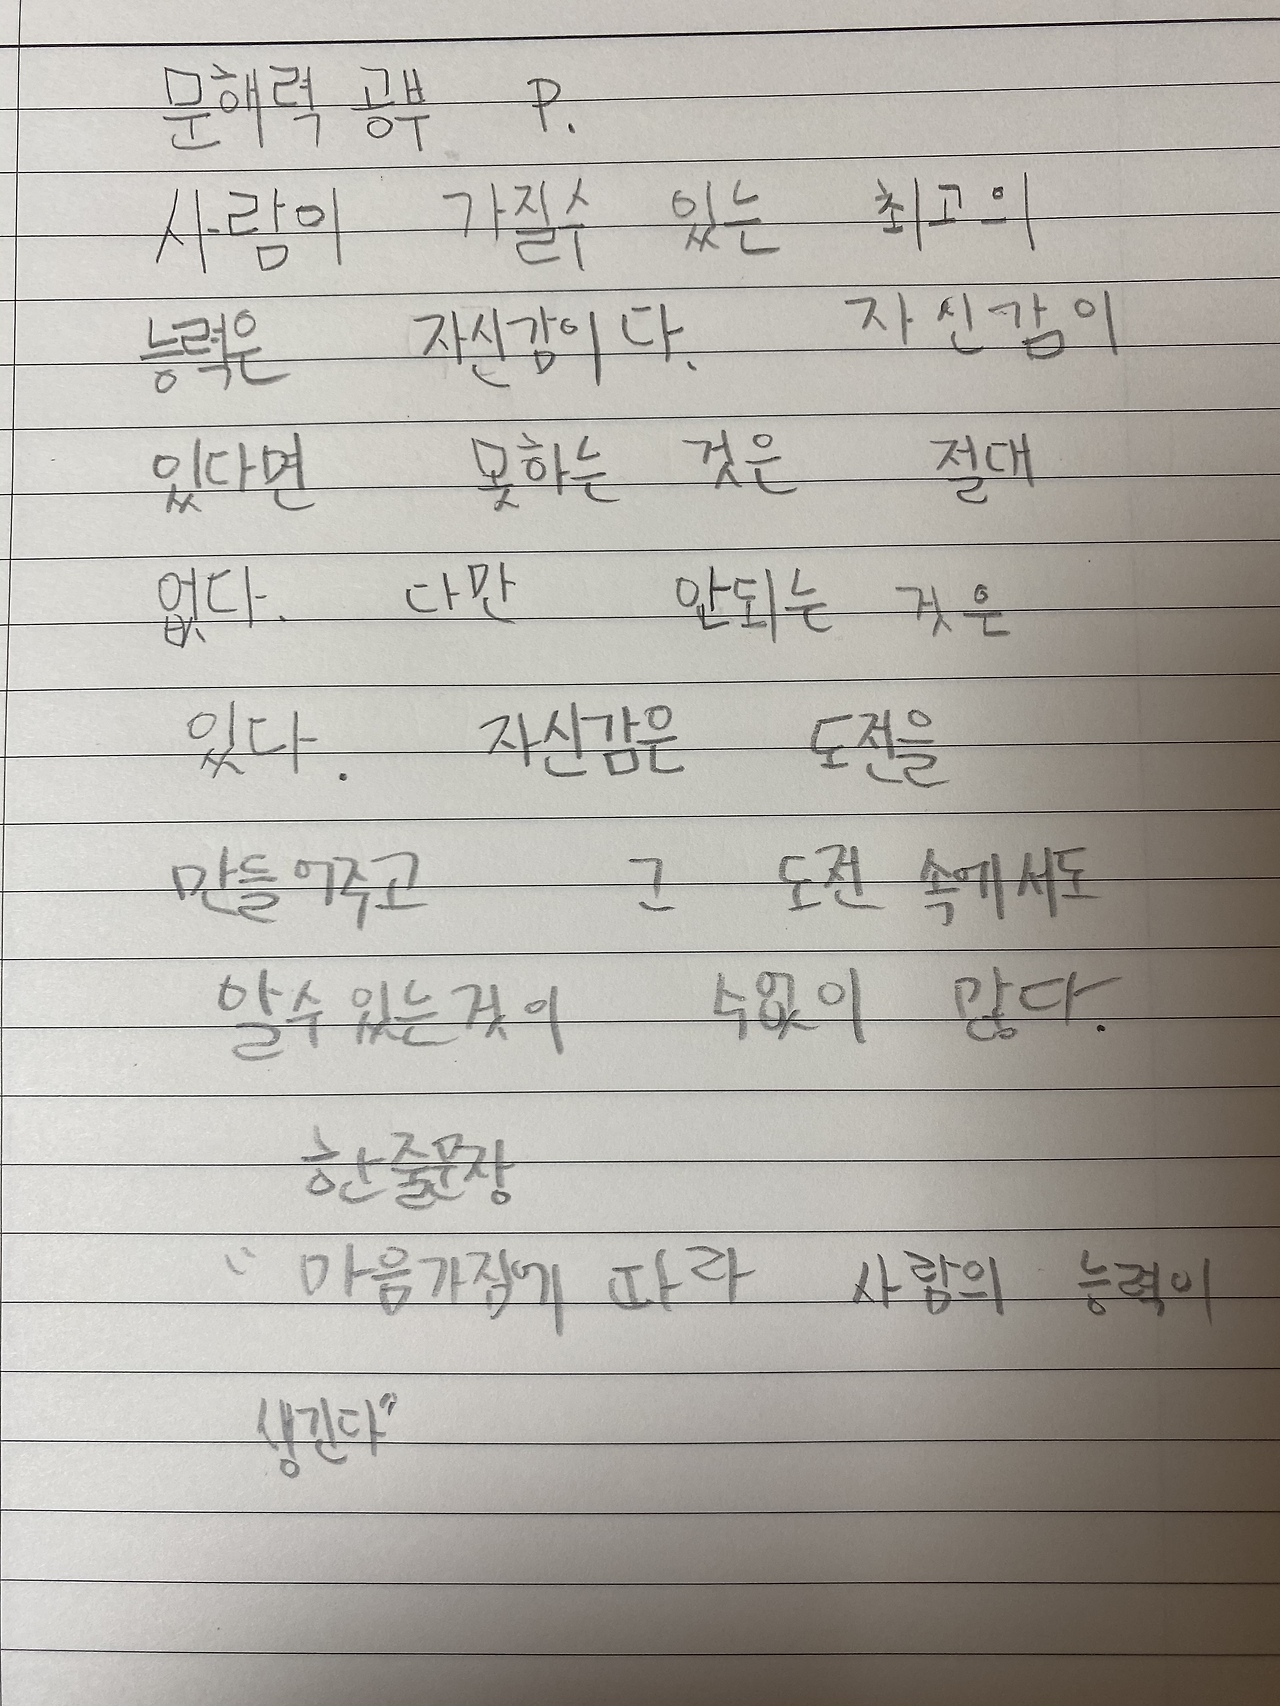 문해력 공부 P.
사람이 가질수 있는 최고의
능력은 자신감이다. 자신감이
있다면 못하는 것은 절대
없다. 다만 안되는 것은
있다. 자신감은 도전을
만들어주고 그 도전 속에서도
알수있는것이 수없이 많다.
한줄문장
"마음가짐에 따라 사람의 능력이
생긴다"